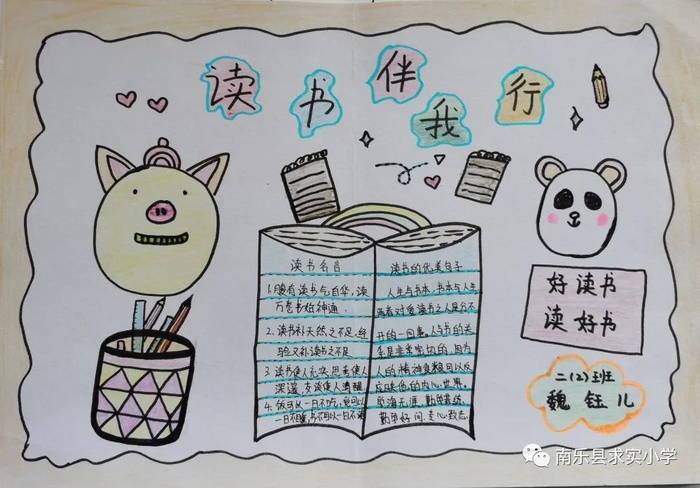 读书伴我行
读书名言
1.腹有诗书气自华,读
万卷书始神通
2.读书补天然之不足,经
验又补读书之不足
3.读书使人充实,思考使人
深邃,交谈使人清醒
4.饭可以一日不吃,觉可以
一日不睡,书不可以一日不读
读书的优美句子
人生与书本,书本与人生
两者对爱读书之人是分不
开的一回事,人与书的关
系是非常密切的,因为
人的精神食粮可以反
应映他的内心世界。
学海无涯,勤学苦练,
勤学好问,专心致志
好读书
读好书
二(2)班
魏钰儿
南乐县求实小学